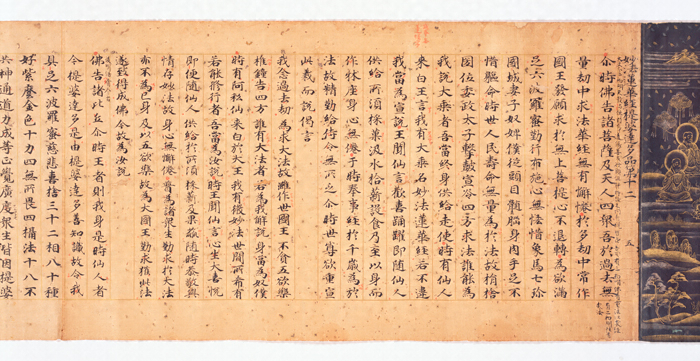 妙法蓮華經提婆達多品第十二　五
尒時佛告諸菩薩及天人四衆吾於過去無
量劫中求法華經無有懈惓於多劫中常作
國王發願求於無上菩提心不退轉為欲滿
足六波羅蜜勤行布施心無悋惜象馬七珎
國城妻子奴婢僕從頭目髓腦身肉手足不
惜軀命時世人民壽命無量為於法故捐捨
國位委政太子擊皷宣令四方求法誰能為
我說大乘者吾當終身供給走使時有仙人
來白王言我有大乘名妙法蓮華經若不違
我當為宣說王聞仙言歡喜踊躍即隨仙人
供給所須採菓汲水拾薪設食乃至以身而
作牀座身心無惓于時奉事經於千歲為於
法故精勤給侍令無所乏尒時世尊欲重宣
此義而說偈言
我念過去劫　為求大法故　雖作世國王　不貪五欲樂
椎鍾告四方　誰有大法者　若為我解說　身當為奴僕
時有阿私仙　來白於大王　我有微妙法　世間所希有
若能修行者　吾當為汝說　時王聞仙言　心生大喜悅
即便隨仙人　供給於所須　採薪及菓蓏　隨時恭敬與
情存妙法故　身心無懈惓　普為諸衆生　勤求於大法
亦不為己身　及以五欲樂　故為大國王　勤求獲此法
遂致得成佛　今故為汝說
佛告諸比丘尒時王者則我身是時仙人者
今提婆達多是由提婆達多善知識故令我
具足六波羅蜜慈悲喜捨三十二相八十種
好紫磨金色十力四無所畏四攝法十八不
共神通道力成等正覺廣度衆生皆因提婆